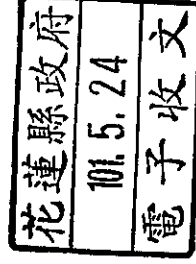 花蓮縣政府
101.5.24
電子收文